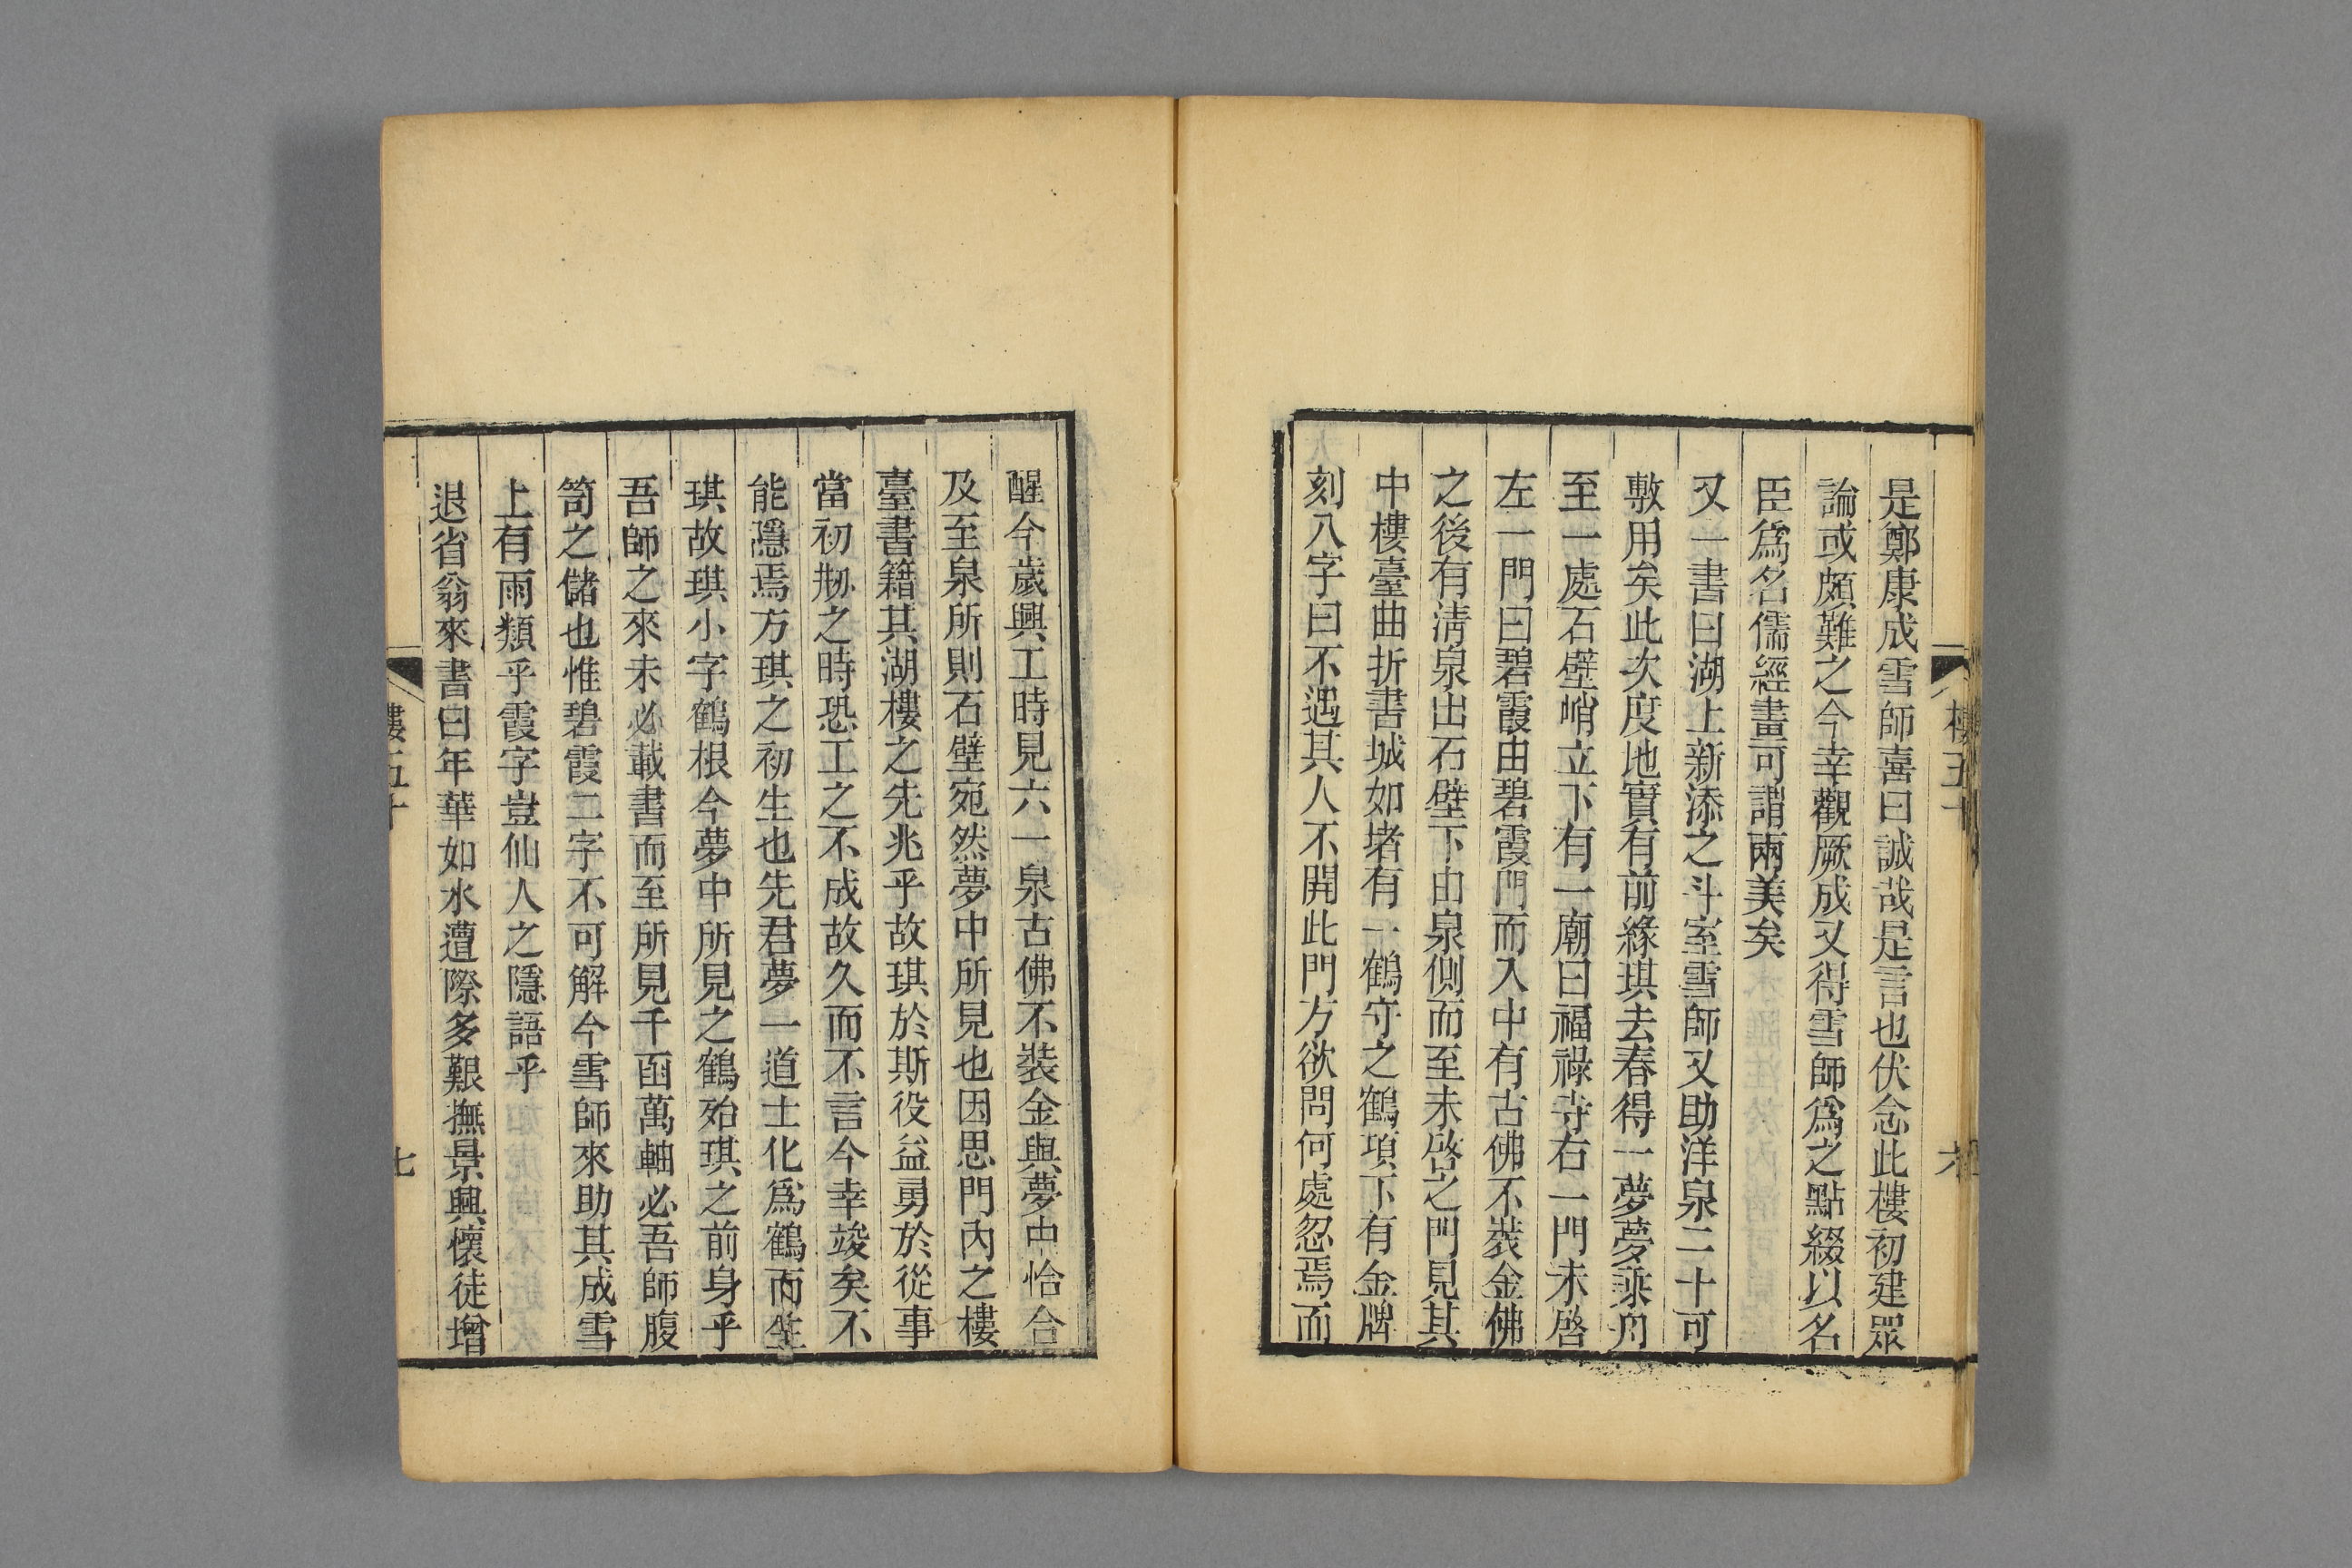 是鄭康成雪師喜曰誠哉是言也伏念此樓初建眾
論或頗難之今幸觀厥成又得雪師爲之點綴以名
臣爲名儒經畫可謂兩美矣
又一書曰湖上新添之斗室雪師又助洋泉二十可
敷用矣此次度地實有前緣琪去春得一夢夢乘舟
至一處石壁峭立下有一廟曰福祿寺右一門未啓
左一門曰碧霞由碧霞門而入中有古佛不裝金佛
之後有淸泉出石壁下由泉側而至未啓之門見其
中樓臺曲折書城如堵有一鶴守之鶴項下有金牌
刻八字曰不遇其人不開此門方欲問何處忽焉而
醒今歲興工時見六一泉古佛不裝金與夢中恰合
及至泉所則石壁宛然夢中所見也因思門內之樓
臺書籍其湖樓之先兆乎故琪於斯役益勇於從事
當初刱之時恐工之不成故久而不言今幸竣矣不
能隱焉方琪之初生也先君夢一道士化爲鶴而生
琪故琪小字鶴根今夢中所見之鶴殆琪之前身乎
吾師之來未必載書而至所見千函萬軸必吾師腹
笥之儲也惟碧霞二字不可解今雪師來助其成雪
上有雨類乎霞字豈仙人之隱語乎
退省翁來書曰年華如水遭際多艱撫景興懷徒增
樓五十
七